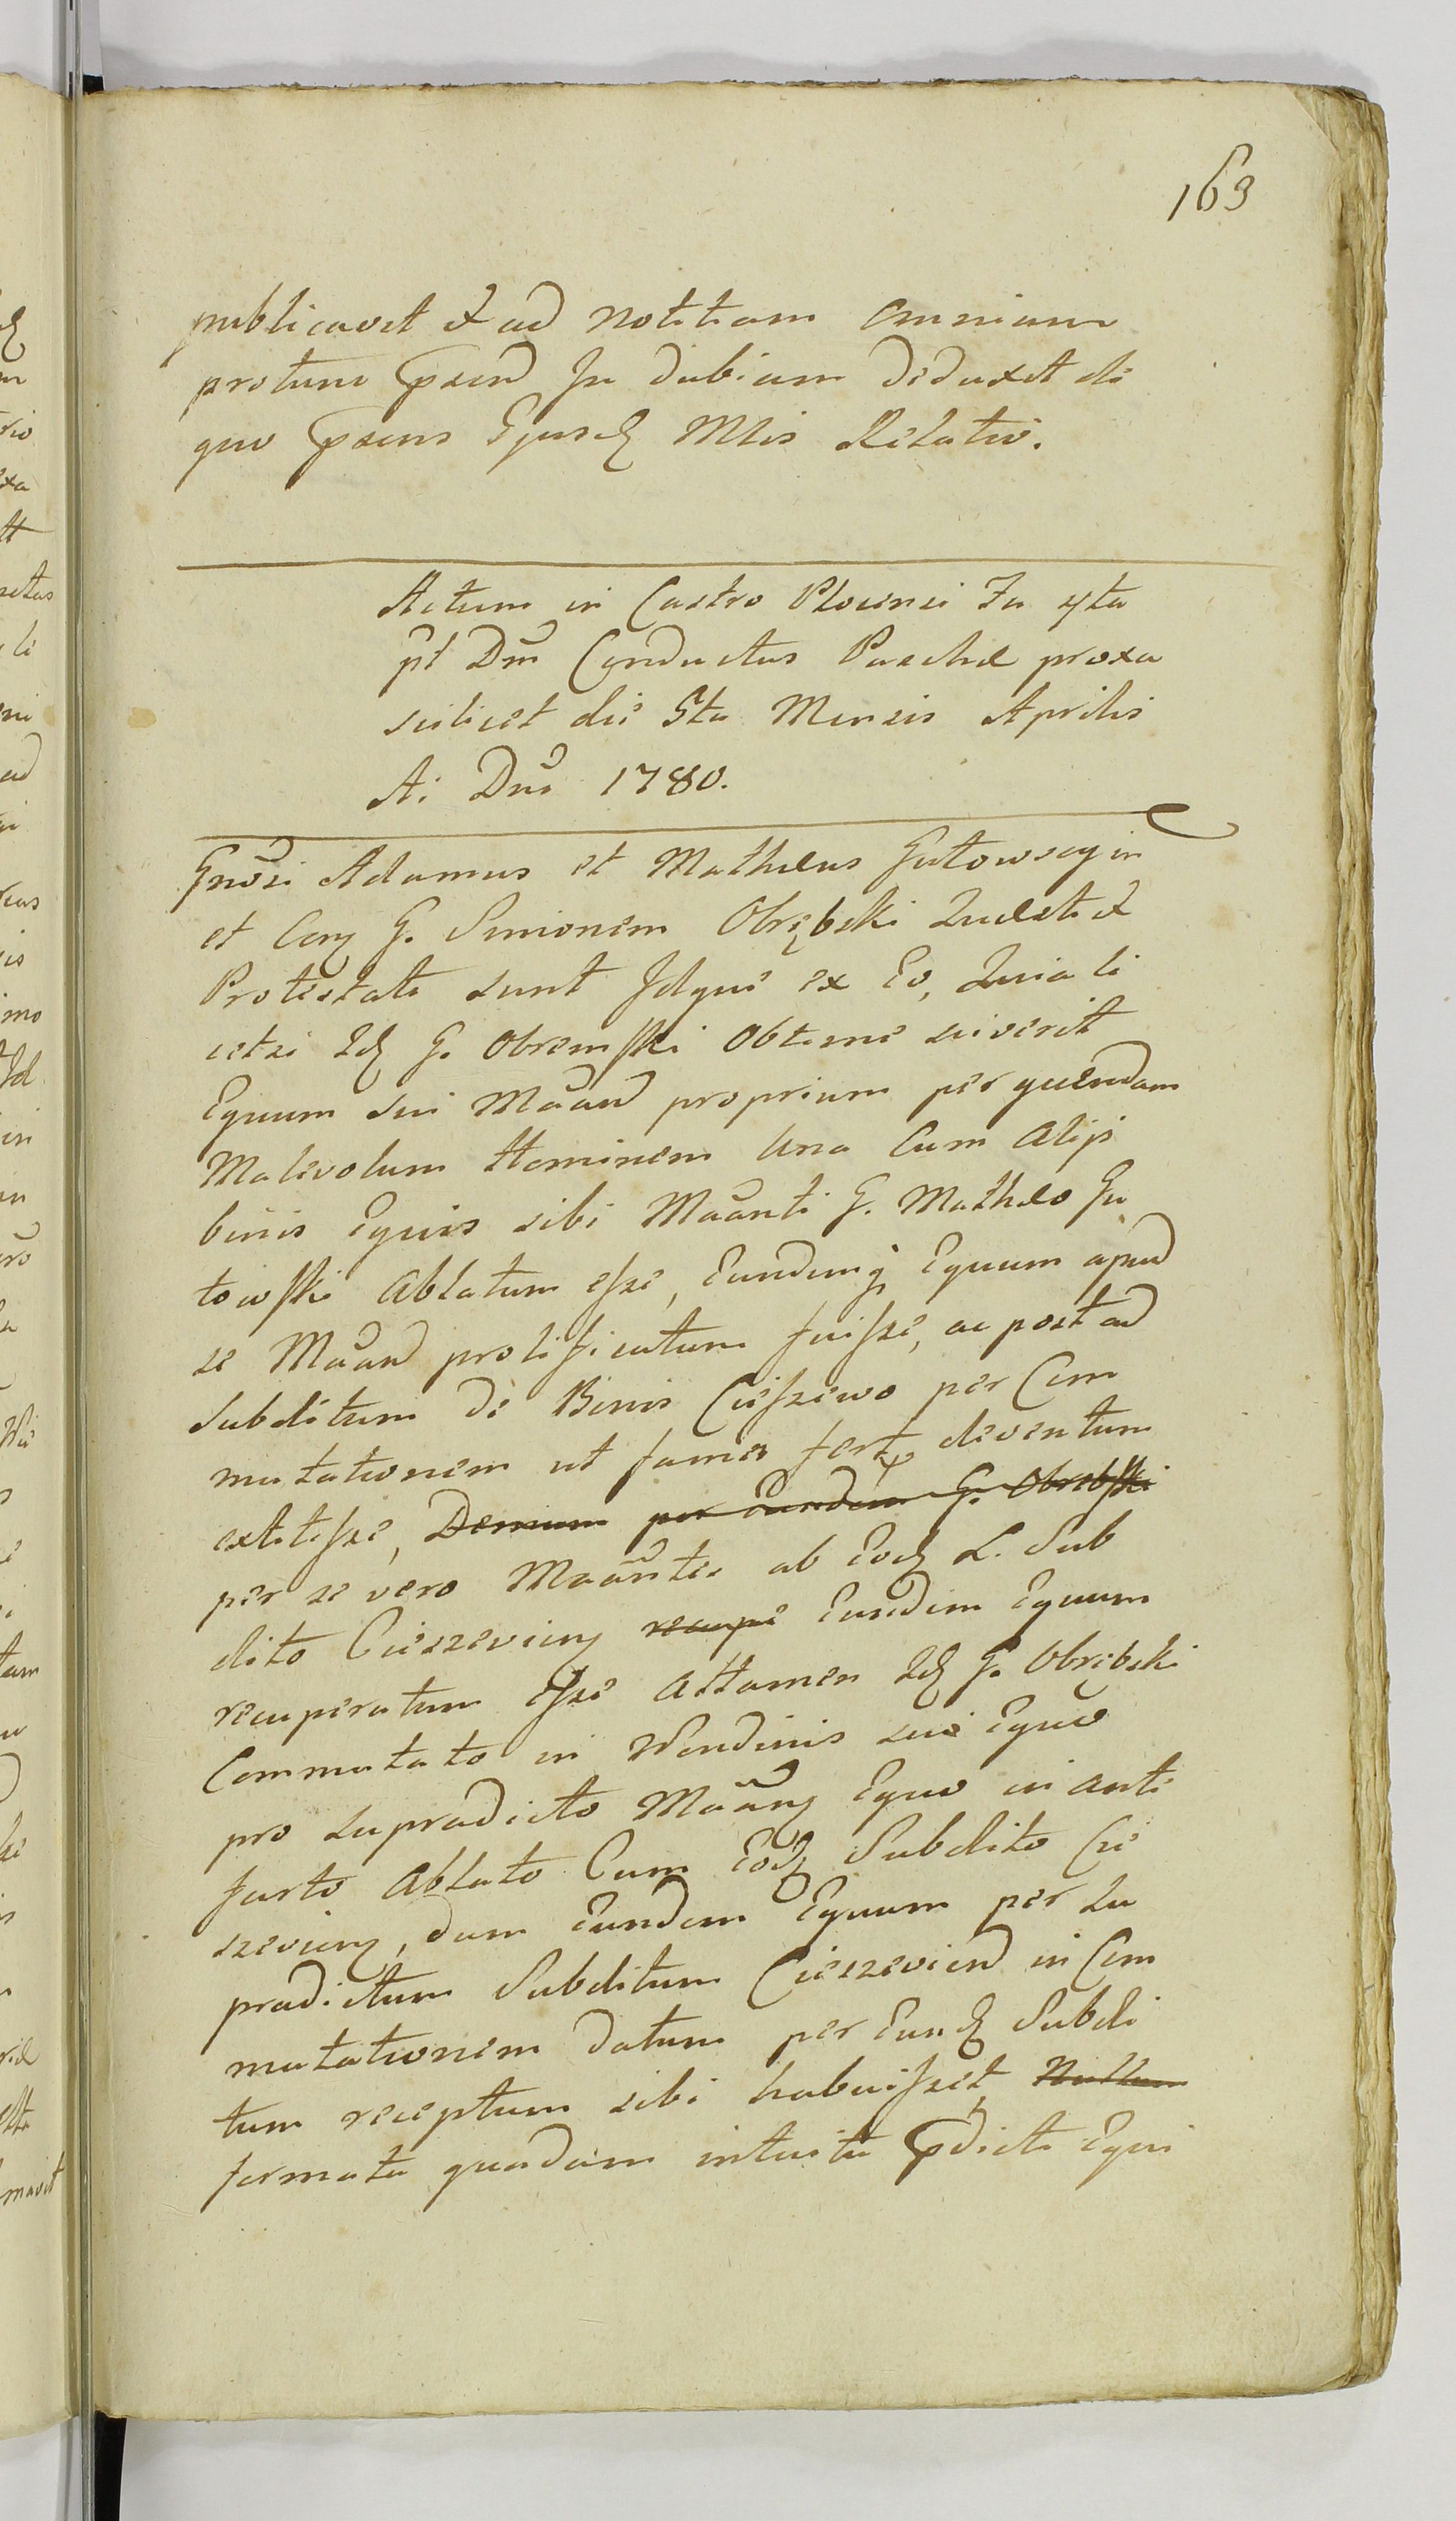 163
publicavit et ad notitiam omnium
protunc Praesen In dubium deduxit de
quo Praesens Ejusd Mlis Relatio.
Actum in Castro Plocensi Fa 4ta
pt Dm Conductus Paschae proxa
scilicet die 5ta Mensis Aprilis
Ai Dni 1780.
Gnosi Adamus et Mathaeus Gutowscy in
et Con G. Simonem Obrębski Quaesti et
Protestati sunt Idque ex Eo, Quia li
cetsi Id G. Obremski Obtime sciverit
Equum sui Maand proprium per quendam
Malevolum Hominem Una Cum Alijs
binis Equis sibi Maanti G. Mathaeo Gu
towski Ablatum esse, Eundemq Equum apud
se Maand prolificatum fuisse, ac post ad
Subditum de Bonis Cieszewo per Com
mutationem ut fama fert deventum
extitisse, Demum per Eundem G. Obrebski
per se vero Maantes ab Eod L. Sub
dito Cieszevien recupe Eundem Equum
recuperatum esse Attamen Id G. Obrębski
Commutato in Nundinis suo Equo
pro supradicto Maan Equo in ante
furto Ablato Cum Eod Subdito Cie
szevien, dum Eundem Equum per su
pradictum Subditum Cieszeviend in Com
mutationem datum per Eund Subdi
tum receptum sibi habuisset, Nullum
formata quadam intuitu Pdicti Equi